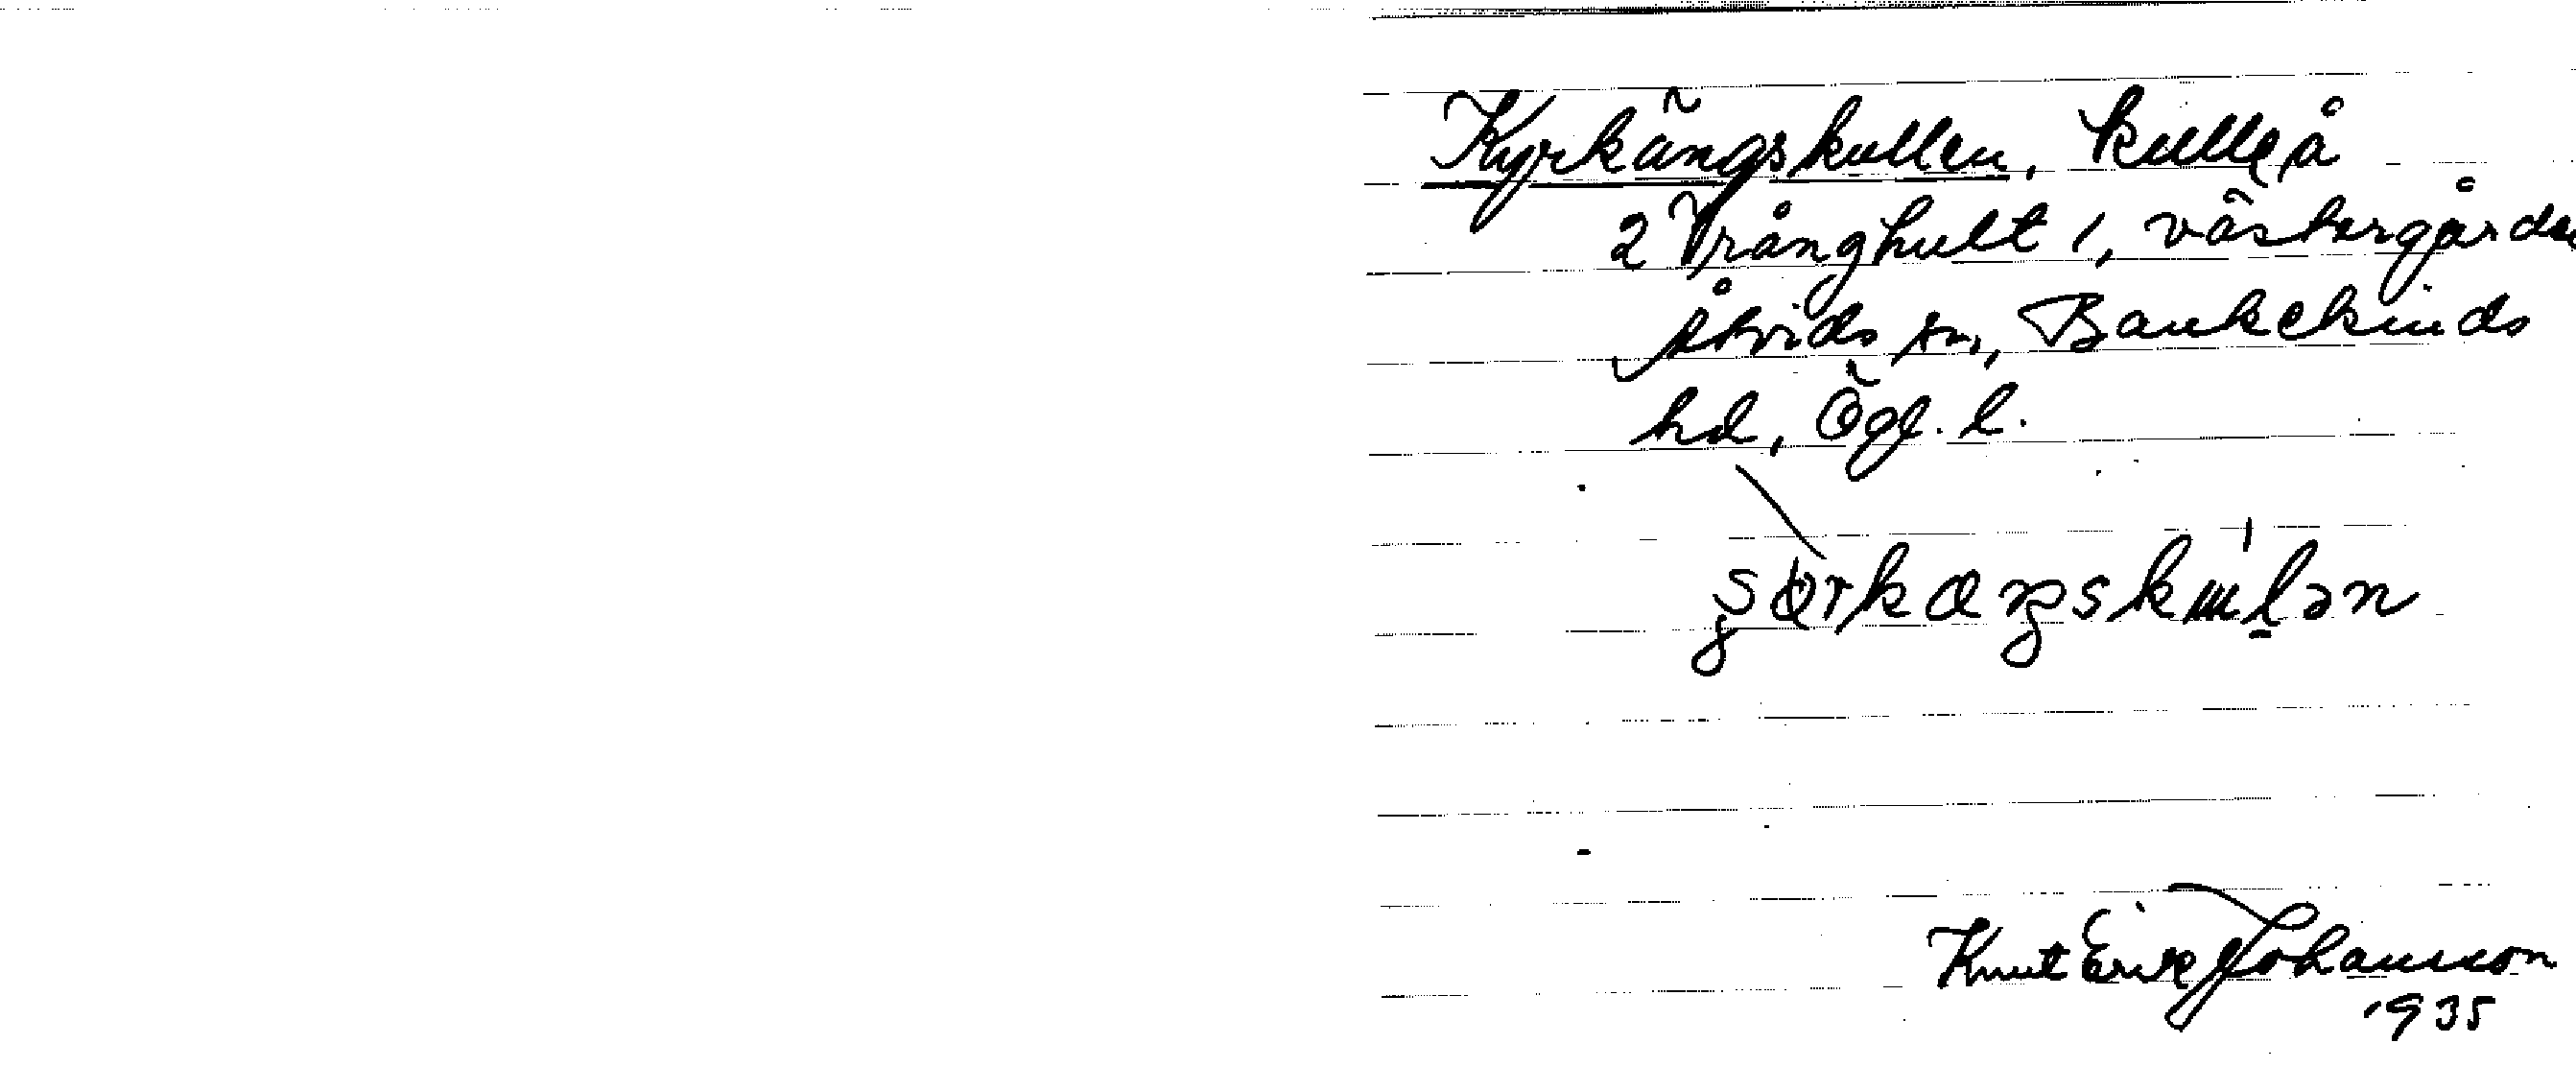 Kyrkängskullen, kulle å
2 Vrånghult 1, västergården
Åtvids sn, Bankekinds
hd, Ögl. l.
Knut Erik Johansson
1935